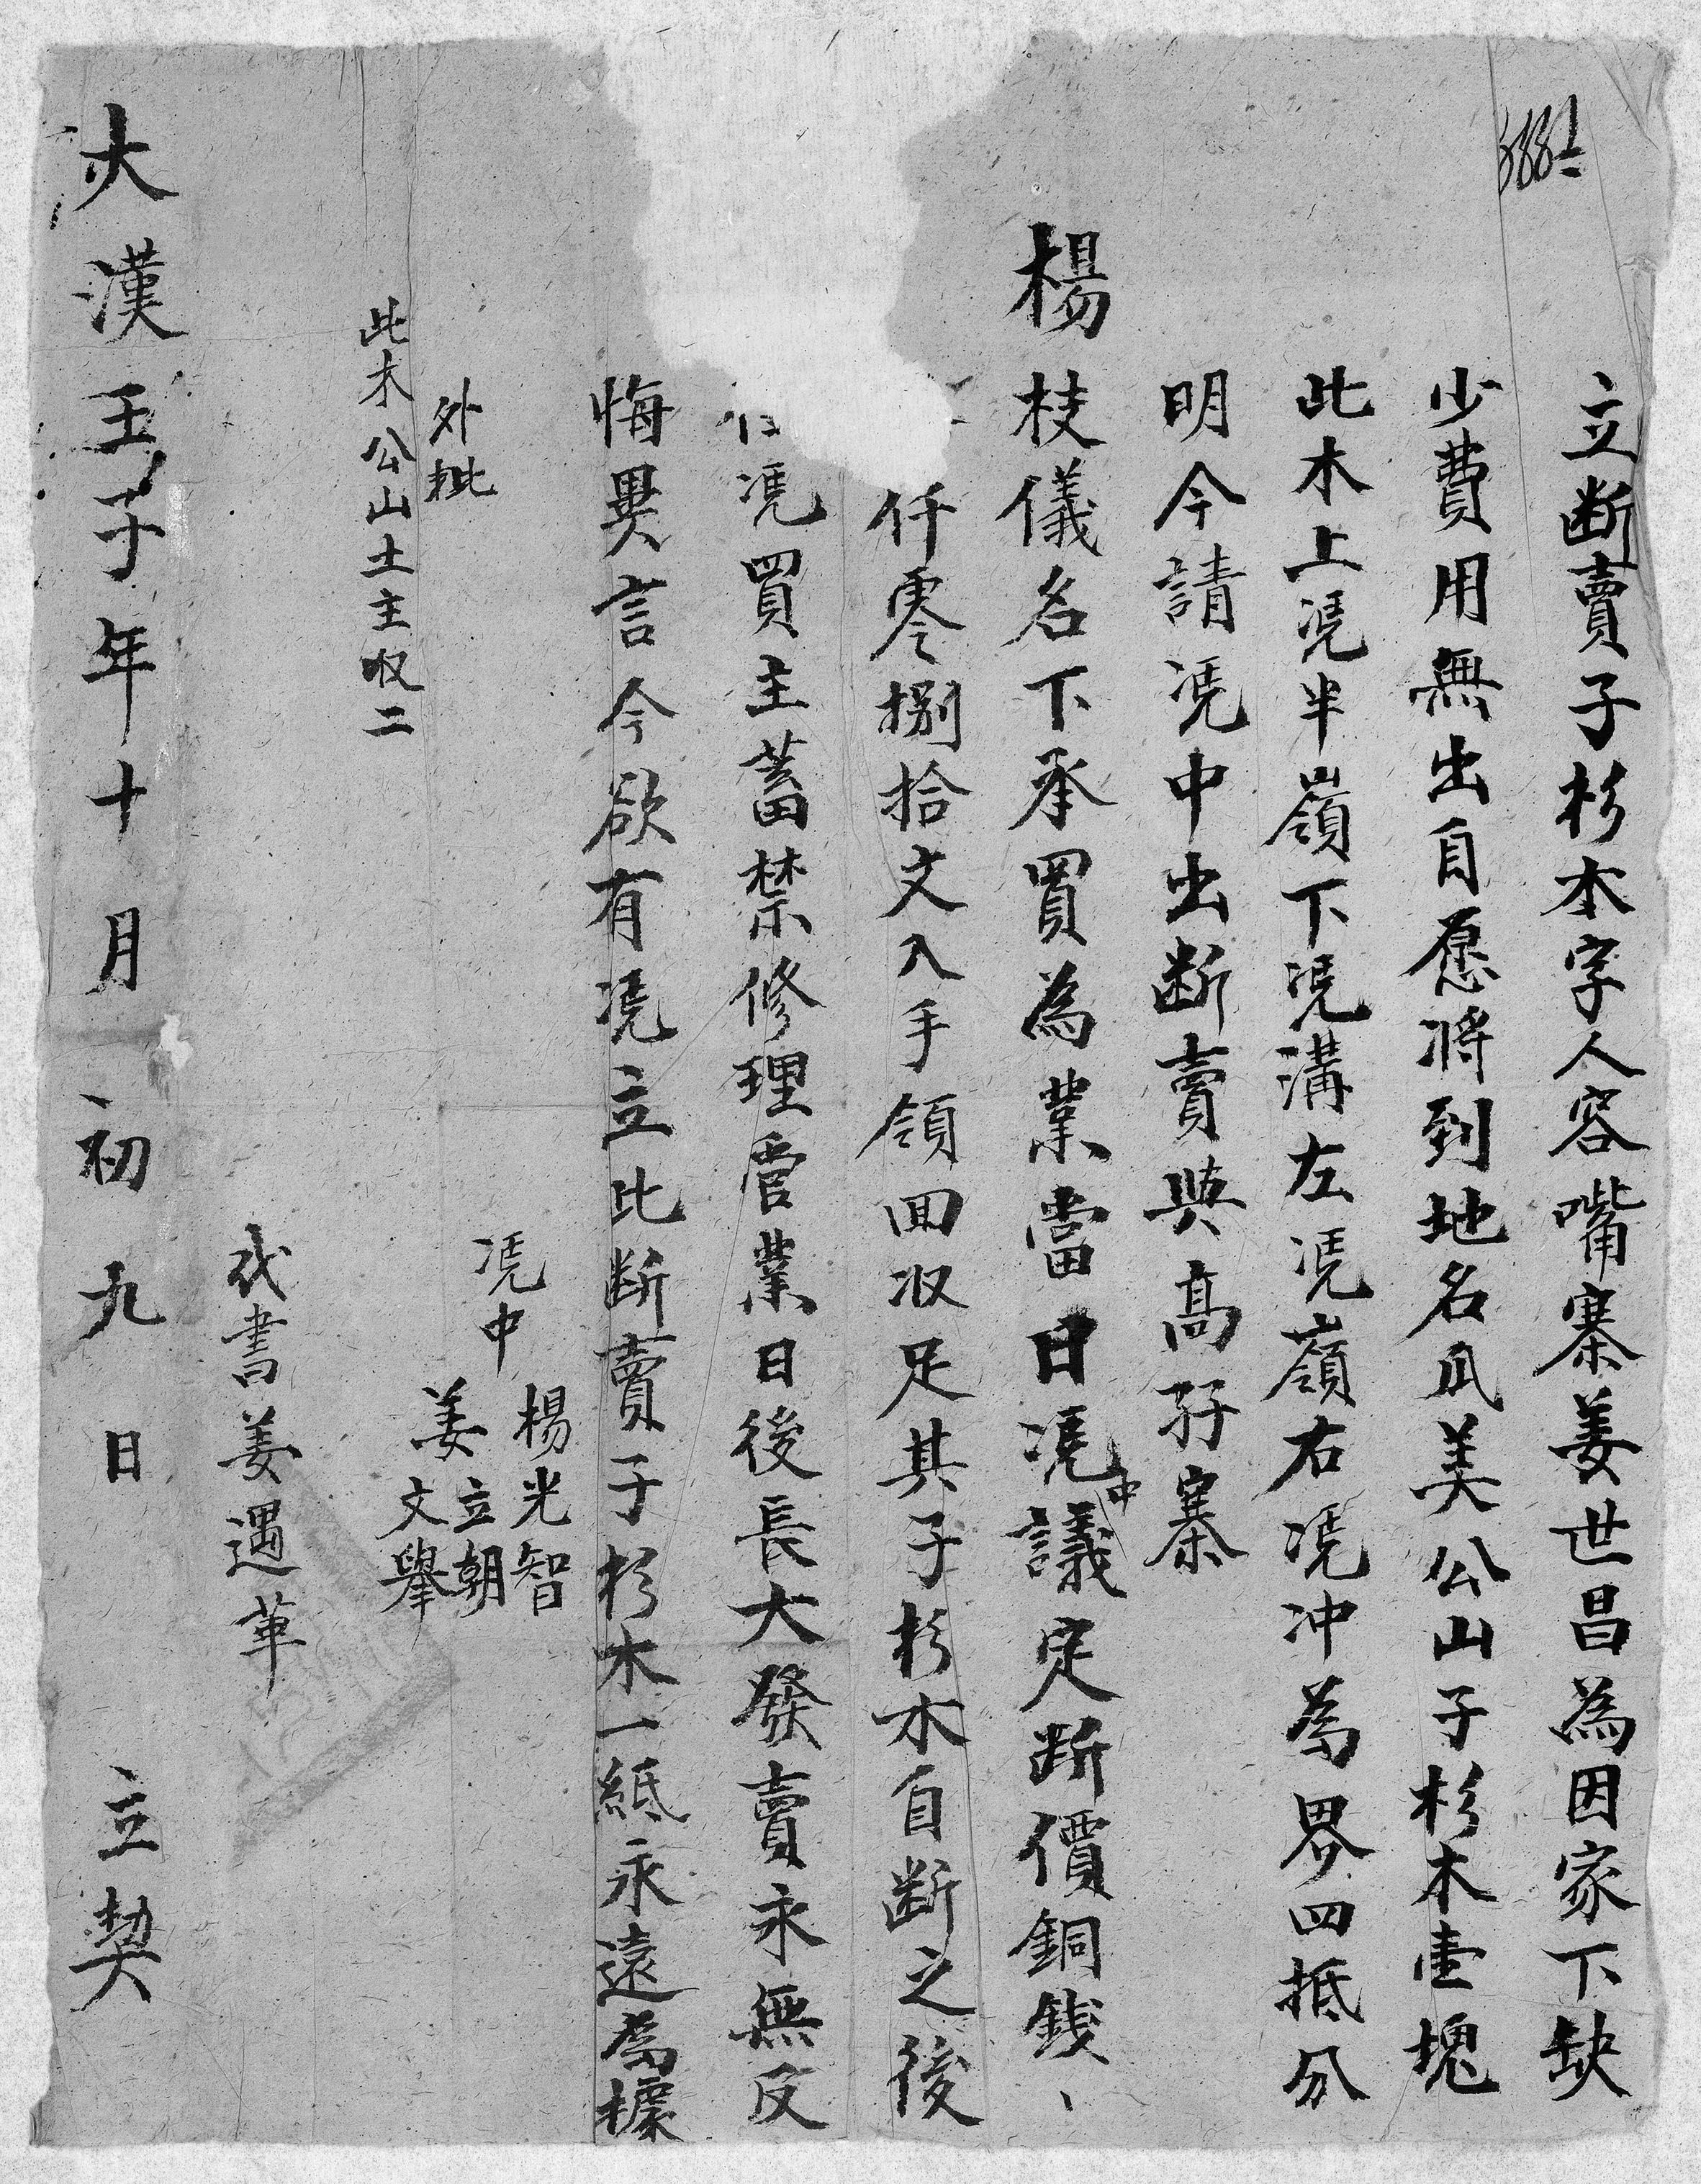 立断賣子杉本字人容嘴寨姜世昌為因家下缺
少費用無出自愿將到地名瓜美公山子杉木壹塊
此木上凴半嶺下凴溝左凴嶺右凴冲為界四抵分
明今請凴中出断賣與高孖寨
楊枝儀名下承買為業當日凴中議定断價銅錢
仟零捌拾文入手領回収足其子杉木自断之後
凴買主蓄禁修理管業日後長大發賣永無反
悔異言今欲有凴立此断賣子杉木一紙永遠為據
外批
此木公山土主収二
凴中 楊光智
姜立朝
文舉
代書姜遇革
大漢壬子年十月初九日 立契